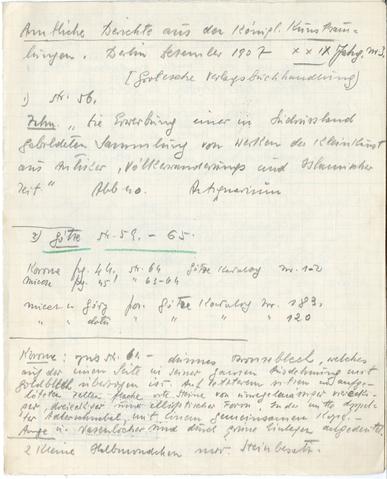 Amtliche Berichte aus der Königl. Kunstsam-
lungen. Berlin Dezember 1907 XXIX Jahrg. nr 3.
[Grotesche Verlagsbuchhandlung]
1) str. 56.
Zahn. „Die Erwerbung einer in Südrussland
gebildeten Sammlung von Werken der Kleinkunst
aus Antiker, Völkerwanderungs und Islamischer
Zeit" Abb 40. Antiquarium
2) Götze str. 59. - 65.
Korona fig. 44. str. 64 Götze Katalog nr. 1-2
miecze fig. 45 " 63-64
miecz u Götze Katalog nr. 183.
" " " " 120
Korona: str. 61 - dünnes Bronzeblech, welches
auf der einen Seite in seiner ganzen Ausdehnung mit
Goldblech überzogen ist. Auf letzterem sitzen in aufge-
löteten Zellen flache rote Steine von unregelmässiger viereck-
iger, dreieckiger und elliptischer Form. In der Mitte doppel-
ter Adlerschnabel mit einem gemeinsamen Kopf.
Auge u. Nasenlöcher sind durch grüne Einlagen angedeutet.
2 Kleine Halbmondchen nur Steinbesatz.